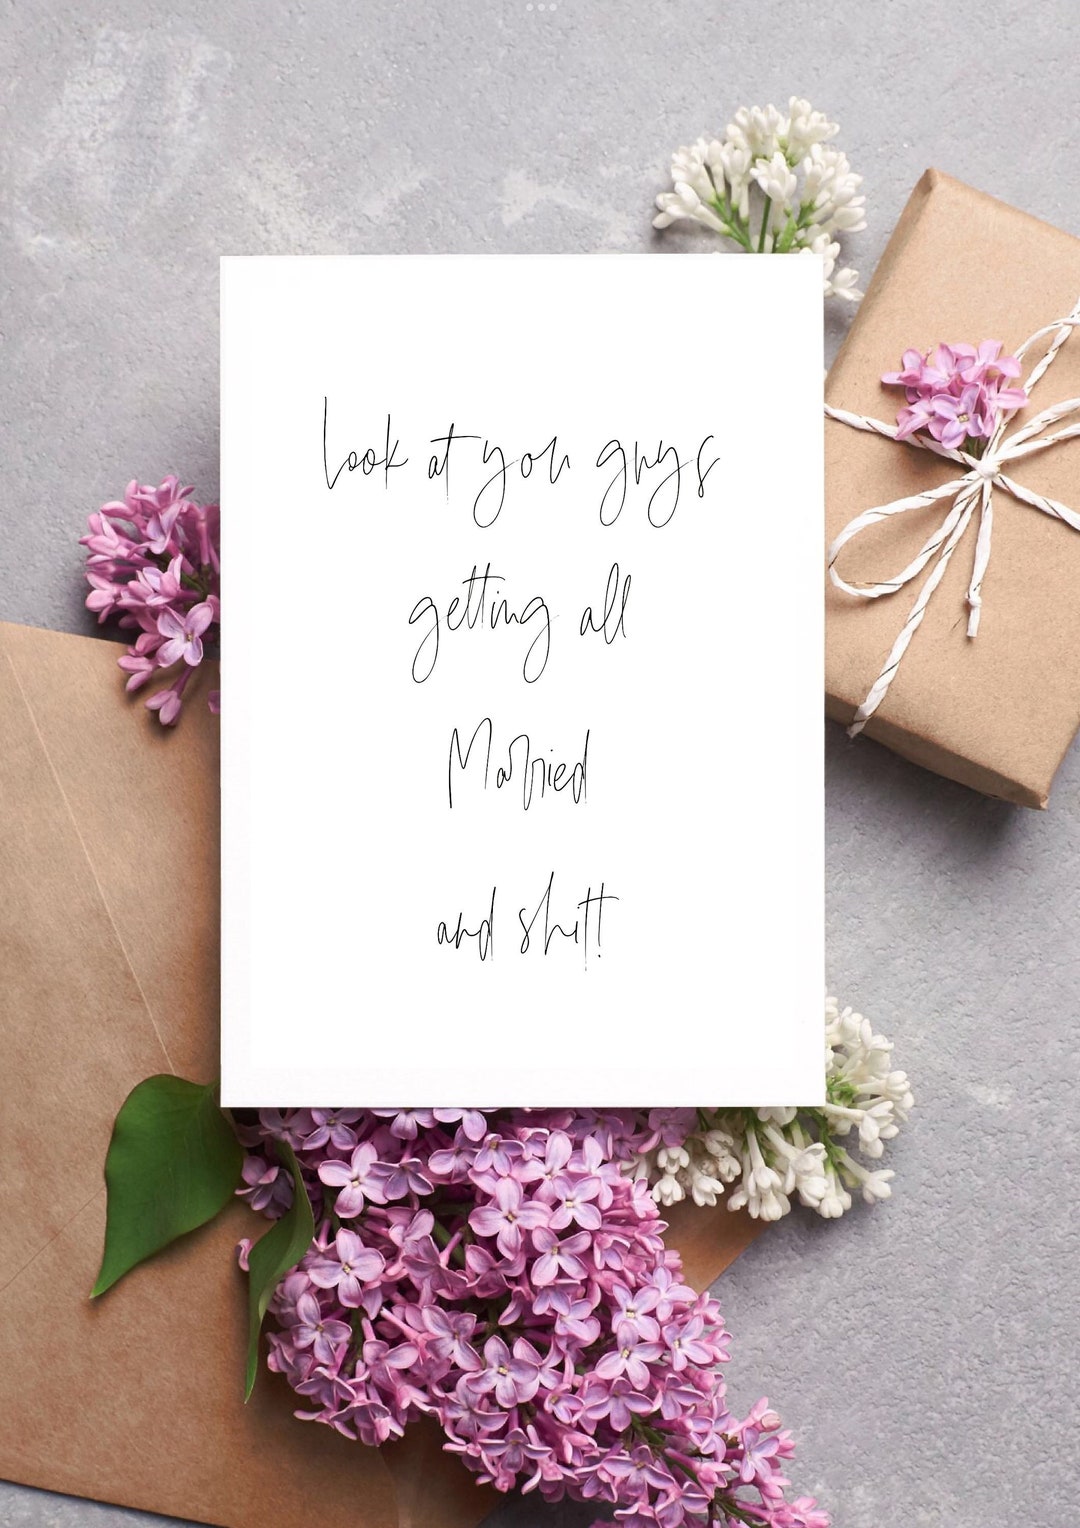 Look at you guys
getting all
Married
and shit!